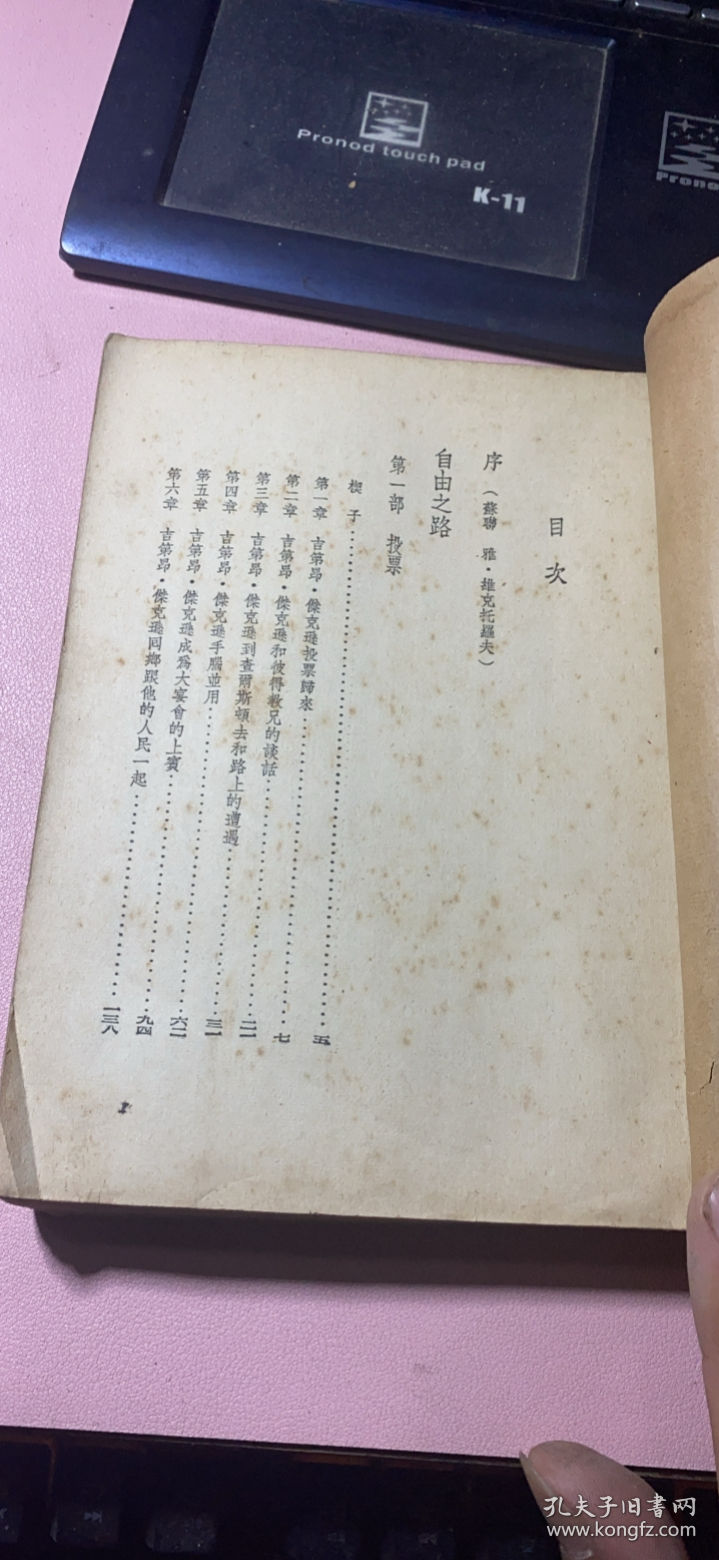 Pronod touch pad
K-11
目次
序（蘇聯 雅·維克托羅夫）
自由之路
第一部 投票
楔子……五
第一章 吉第昂·傑克遜投票歸來……七
第二章 吉第昂·傑克遜和彼得教兄的談話……二一
第三章 吉第昂·傑克遜到查爾斯頓去和路上的遭遇……三一
第四章 吉第昂·傑克遜手腦並用……六二
第五章 吉第昂·傑克遜成爲大宴會的上賓……九四
第六章 吉第昂·傑克遜回鄉跟他的人民一起……一三八
孔夫子旧書网
www.kongfz.com